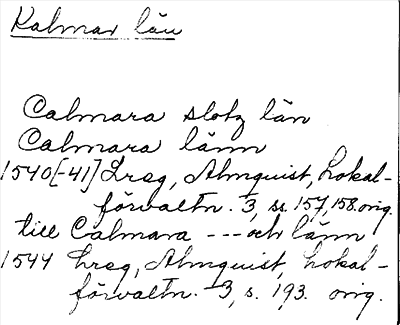 Kalmar län
Calmara slotz län
Calmara länn
1540[-41] Lreg, Almquist, Lokal-
förvaltn. 3, ss. 157, 158 orig.
till Calmara --- och länn
1544 Lreg, Almquist, Lokal-
förvaltn. 3, s. 193. orig.